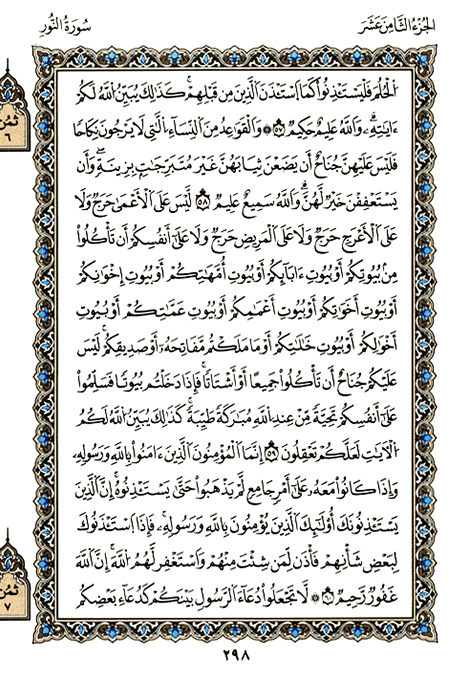 الجُزْءُ الثَّامِنَ عَشَرَ
سُورَةُ النُّورِ
اَلْحُلُمَ فَلْيَسْتَٰذِنُواْ كَمَا اَسْتَٰذَنَ اَلذِينَ مِن قَبْلِهِمْ كَذَٰلِكَ يُبَيِّنُ اُللَّهُ لَكُمْ
ءَايَٰتِهِۦ وَاللَّهُ عَلِيمٌ حَكِيمٌ ٥٧ ۞ وَالْقَوَٰعِدُ مِنَ اَلنِّسَآءِ اِلَّٰتِي لَا يَرْجُونَ نِكَاحًا
فَلَيْسَ عَلَيْهِنَّ جُنَاحٌ أَن يَضَعْنَ ثِيَابَهُنَّ غَيْرَ مُتَبَرِّجَٰتٍ بِزِينَةٍ وَأَن
يَسْتَعْفِفْنَ خَيْرٌ لَّهُنَّ وَاللَّهُ سَمِيعٌ عَلِيمٌ ٥٨ لَّيْسَ عَلَى اَلَاعْمَىٰ حَرَجٌ وَلَا
عَلَى اَلَاعْرَجِ حَرَجٌ وَلَا عَلَى اَلْمَرِيضِ حَرَجٌ وَلَا عَلَىٰٓ أَنفُسِكُمْ أَن تَاكُلُواْ
مِنْ بُيُوتِكُمْ أَوْ بُيُوتِ ءَابَآئِكُمْ أَوْ بُيُوتِ أُمَّهَٰتِكُمْ أَوْ بُيُوتِ إِخْوَٰنِكُمْ
أَوْ بُيُوتِ أَخَوَٰتِكُمْ أَوْ بُيُوتِ أَعْمَٰمِكُمْ أَوْ بُيُوتِ عَمَّٰتِكُمْ أَوْ بُيُوتِ
أَخْوَٰلِكُمْ أَوْ بُيُوتِ خَٰلَٰتِكُمْ أَوْ مَا مَلَكْتُم مَّفَاتِحَهُۥٓ أَوْ صَدِيقِكُمْ لَيْسَ
عَلَيْكُمْ جُنَاحٌ أَن تَاكُلُواْ جَمِيعًا أَوْ أَشْتَاتًا فَإِذَا دَخَلْتُم بُيُوتًا فَسَلِّمُواْ
عَلَىٰٓ أَنفُسِكُمْ تَحِيَّةً مِّنْ عِندِ اِللَّهِ مُبَٰرَكَةً طَيِّبَةً كَذَٰلِكَ يُبَيِّنُ اُللَّهُ لَكُمُ
اُلَايَٰتِ لَعَلَّكُمْ تَعْقِلُونَ ٥٩ إِنَّمَا اَلْمُومِنُونَ اَلذِينَ ءَامَنُواْ بِاللَّهِ وَرَسُولِهِۦ
وَإِذَا كَانُواْ مَعَهُۥ عَلَىٰٓ أَمْرٍ جَامِعٍ لَّمْ يَذْهَبُواْ حَتَّىٰ يَسْتَٰذِنُوهُ إِنَّ اَلذِينَ
يَسْتَٰذِنُونَكَ أُوْلَٰٓئِكَ اَلذِينَ يُومِنُونَ بِاللَّهِ وَرَسُولِهِۦ فَإِذَا اَسْتَٰذَنُوكَ
لِبَعْضِ شَأْنِهِمْ فَأْذَن لِّمَن شِئْتَ مِنْهُمْ وَاسْتَغْفِرْ لَهُمُ اُللَّهَ إِنَّ اَللَّهَ
غَفُورٌ رَّحِيمٌ ٦٠ ۞ لَّا تَجْعَلُواْ دُعَآءَ اَلرَّسُولِ بَيْنَكُمْ كَدُعَآءِ بَعْضِكُم
ثُمُن
٦
ثُمُن
٧
٢٩٨